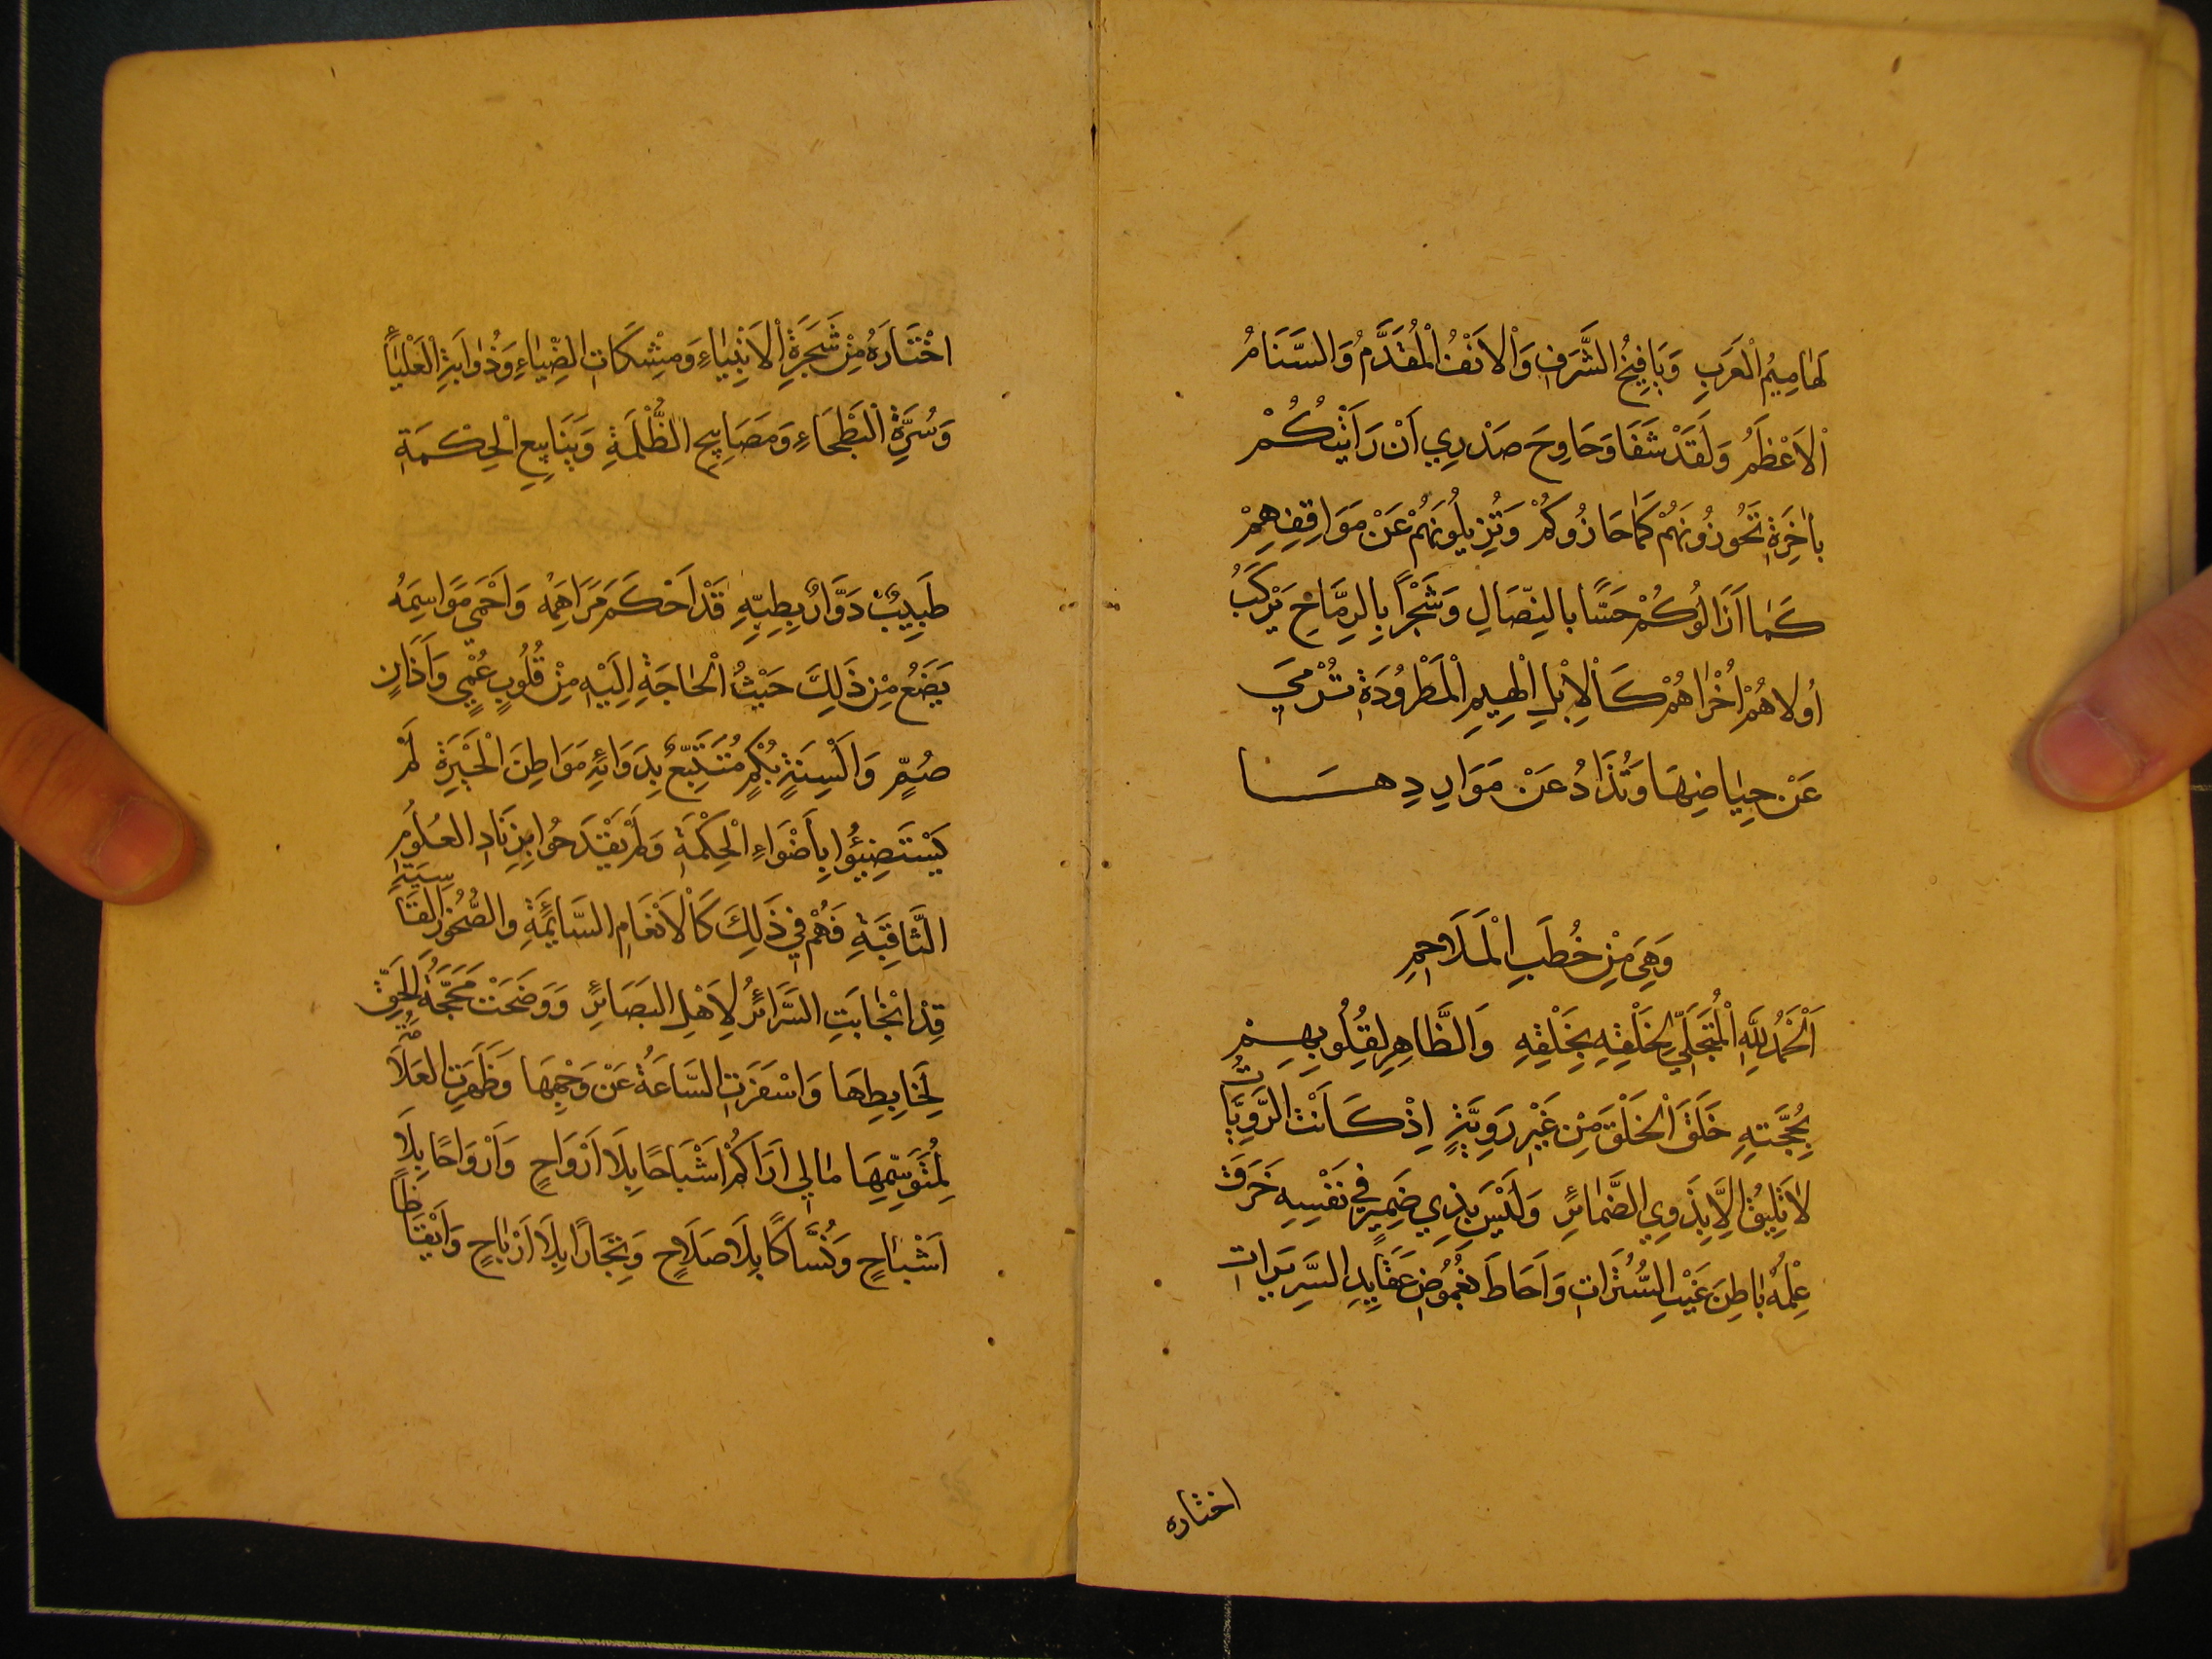 لَهَامِيمُ الْعَرَبِ وَيَافِيخُ الشَّرَفِ وَالْاَنْفُ الْمُقَدَّمُ وَالسَّنَامُ
الْاَعْظَمُ وَلَقَدْ شَفَا وَحَاوِحَ صَدْرِي اَنْ رَاَيْتُكُمْ
بِاٰخِرَةٍ تَحُوزُونَهُمْ كَمَا حَازُوكُمْ وَتُزِيلُونَهُمْ عَنْ مَوَاقِفِهِمْ
كَمَا اَزَالُوكُمْ حَسًّا بِالنِّصَالِ وَشَجْرًا بِالرِّمَاحِ يَرْكَبُ
اُولَاهُمْ اُخْرَاهُمْ كَالْاِبْلِ الْهِيمِ الْمَطْرُودَةِ تُرْمَي
عَنْ حِيَاضِهَا وَتُذَادُ عَنْ مَوَارِدِهَا
وَهِيَ مِنْ خُطَبِ الْمَلَاحِمِ
اَلْحَمْدُ لِلّٰهِ الْمُتَجَلِّي لِخَلْقِهِ بِخَلْقِهِ وَالظَّاهِرِ لِقُلُوبِهِمْ
بِحُجَّتِهِ خَلَقَ الْخَلْقَ مِنْ غَيْرِ رَوِيَّةٍ اِذْ كَانَتْ الرَّوِيَّاتُ
لَا تَلِيقُ اِلَّا بِذَوِي الضَّمَائِرِ وَلَيْسَ بِذِي ضَمِيرٍ فِي نَفْسِهِ خَرَقَ
عِلْمُهُ بَاطِنَ غَيْبِ السُّتُرَاتِ وَاَحَاطَ بِغُمُوضِ عَقَايِدِ السَّرِيرَاتِ
اختاره
اخْتَارَهُ مِنْ شَجَرَةِ الْاَنْبِيَاءِ وَمِشْكَاتِ الضِّيَاءِ وَذُوَابَةِ الْعَلْيَاءِ
وَسُرَّةِ الْبَطْحَاءِ وَمَصَابِيحِ الظُّلْمَةِ وَيَنَابِيعِ الْحِكْمَةِ
طَبِيبٌ دَوَّارٌ بِطِبِّهِ قَدْ اَحْكَمَ مَرَاهِمَهُ وَاَحْمَي مَوَاسِمَهُ
يَضَعُ مِنْ ذَلِكَ حَيْثُ الْحَاجَةُ اِلَيْهِ مِنْ قُلُوبٍ عُمْيٍ وَاَذَانٍ
صُمٍّ وَاَلْسِنَةٍ بُكْمٍ مُتَتَبِّعٌ بِدَوَائِهِ مَوَاطِنَ الْحَيْرَةِ لَمْ
يَسْتَضِيئُوا بِاَضْوَاءِ الْحِكْمَةِ وَلَمْ يَقْدَحُوا بِزِنَادِ الْعُلُومِ
الثَّاقِبَةِ فَهُمْ فِي ذَلِكَ كَالْاَنْعَامِ السَّايِمَةِ وَالصُّخُورِ الْقَاسِيَةِ
قَدْ انْجَابَتِ السَّرَائِرُ لِاَهْلِ الْبَصَائِرِ وَوَضَحَتْ مَحَجَّةُ الْحَقِّ
لِخَابِطِهَا وَاَسْفَرَتِ السَّاعَةُ عَنْ وَجْهِهَا وَظَهَرَتِ الْعَلَامَةُ
لِمُتَوَسِّمِهَا مَا لِي اَرَاكُمْ اَشْبَاحًا بِلَا اَرْوَاحٍ وَاَرْوَاحًا بِلَا
اَشْبَاحٍ وَنُسَّاكًا بِلَا صَلَاحٍ وَتِجَارًا بِلَا اَرْبَاحٍ وَاَيْقَاظًا